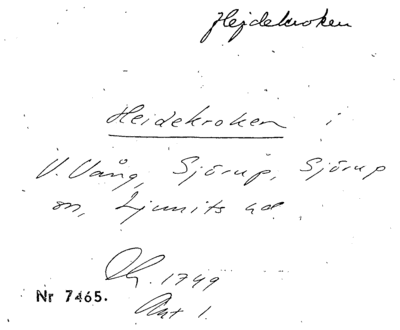 Hejdekroken
Heidekroken i
V. Vång, Sjörup, Sjörup
sn, Ljunits hd.
Lm. 1749
Akt 1.
Nr 7465.